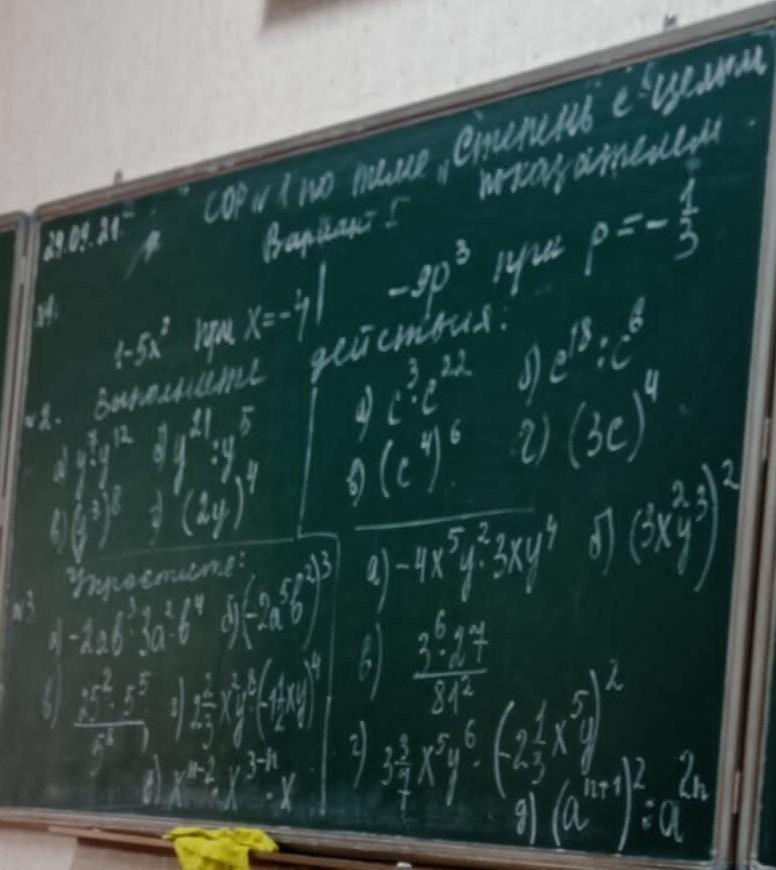 29.09.21г.
СОР №1 по теме „Степень с целым показателем"
Вариант I
№1.
1-5x² при x=-4
-9p³ при p=-1/3
№2. Выполните действия:
а) y⁷·y¹² б) y²¹:y⁵
в) (y³)⁸ г) (2y)⁴
а) c³·c²² б) c¹⁸:c⁶
в) (c⁴)⁶ г) (3c)⁴
№3 Упростите:
а) -2ab³·3a²·b⁴ б) (-2a⁵b²)³
в) 25²·5⁵/5⁸ г) 2 2/3 x²y⁸·(-1 1/2 xy)⁴
е) xⁿ⁻²·x³⁻ⁿ·x
а) -4x⁵y²·3xy⁴ б) (3x²y³)²
в) 3⁶·27/81²
г) 3 3/7 x⁵y⁶·(-2 1/3 x⁵y)²
д) (aⁿ⁺¹)²:a²ⁿ